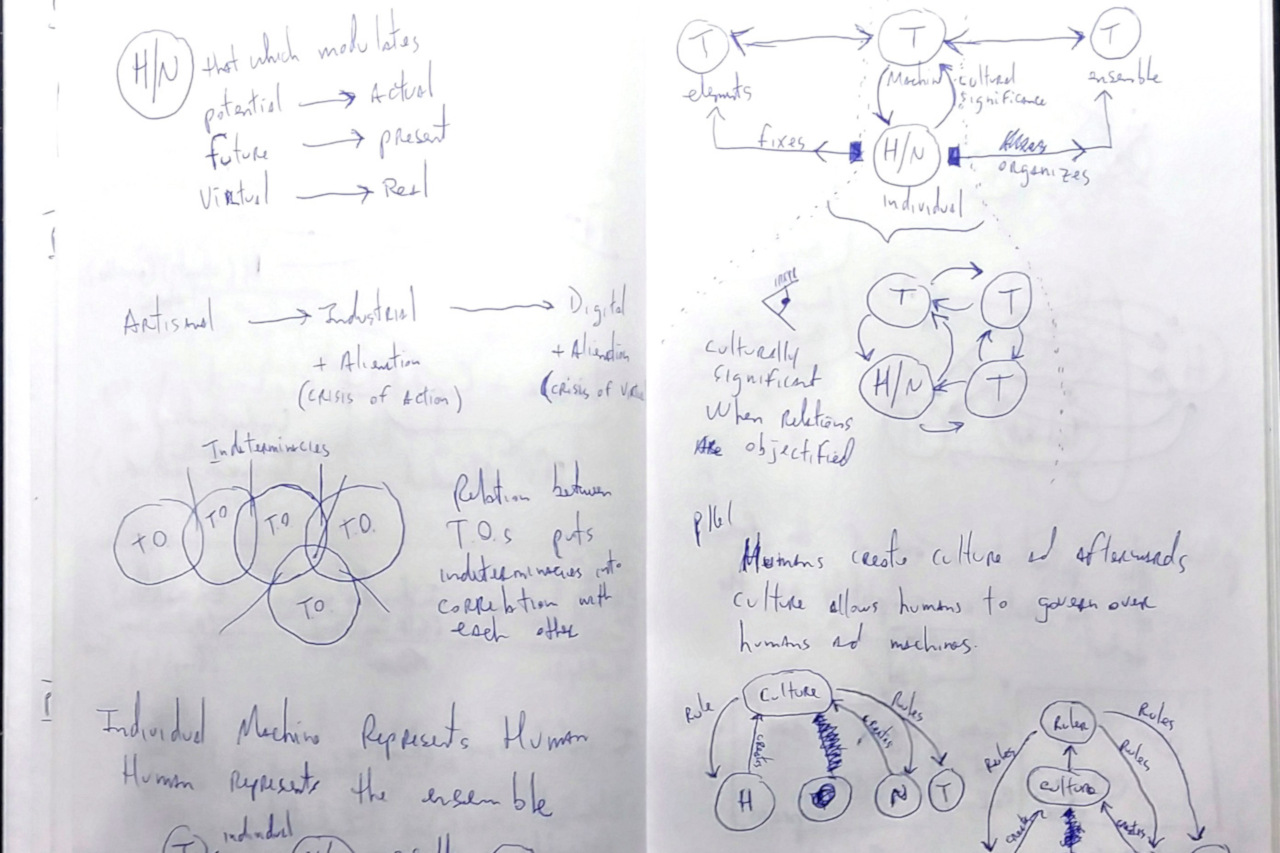 H/N
that which modulates
potential → Actual
future → present
Virtual → Real
Artisanal → Industrial → Digital
+ Alienation
(Crisis of Action)
+ Alienation
(Crisis of
Indeterminacies
T.O.
T.O
T.O
T.O.
T.O.
Relation between
T.O.s puts
indeterminacies into
correlation with
each other
Individual Machine Represents Human
Human represents the ensemble
T
individual
T
T
T
elements
Machine
cultural
significance
ensemble
fixes
H/N
organizes
individual
T
T
H/N
T
culturally
significant
When relations
Are objectified
p161
Humans create culture ad afterwards
culture allows humans to govern over
humans ad machines.
Culture
Rule
creates
Rules
creates
H
N
T
Ruler
Rules
Rules
Rules
culture
create
creates